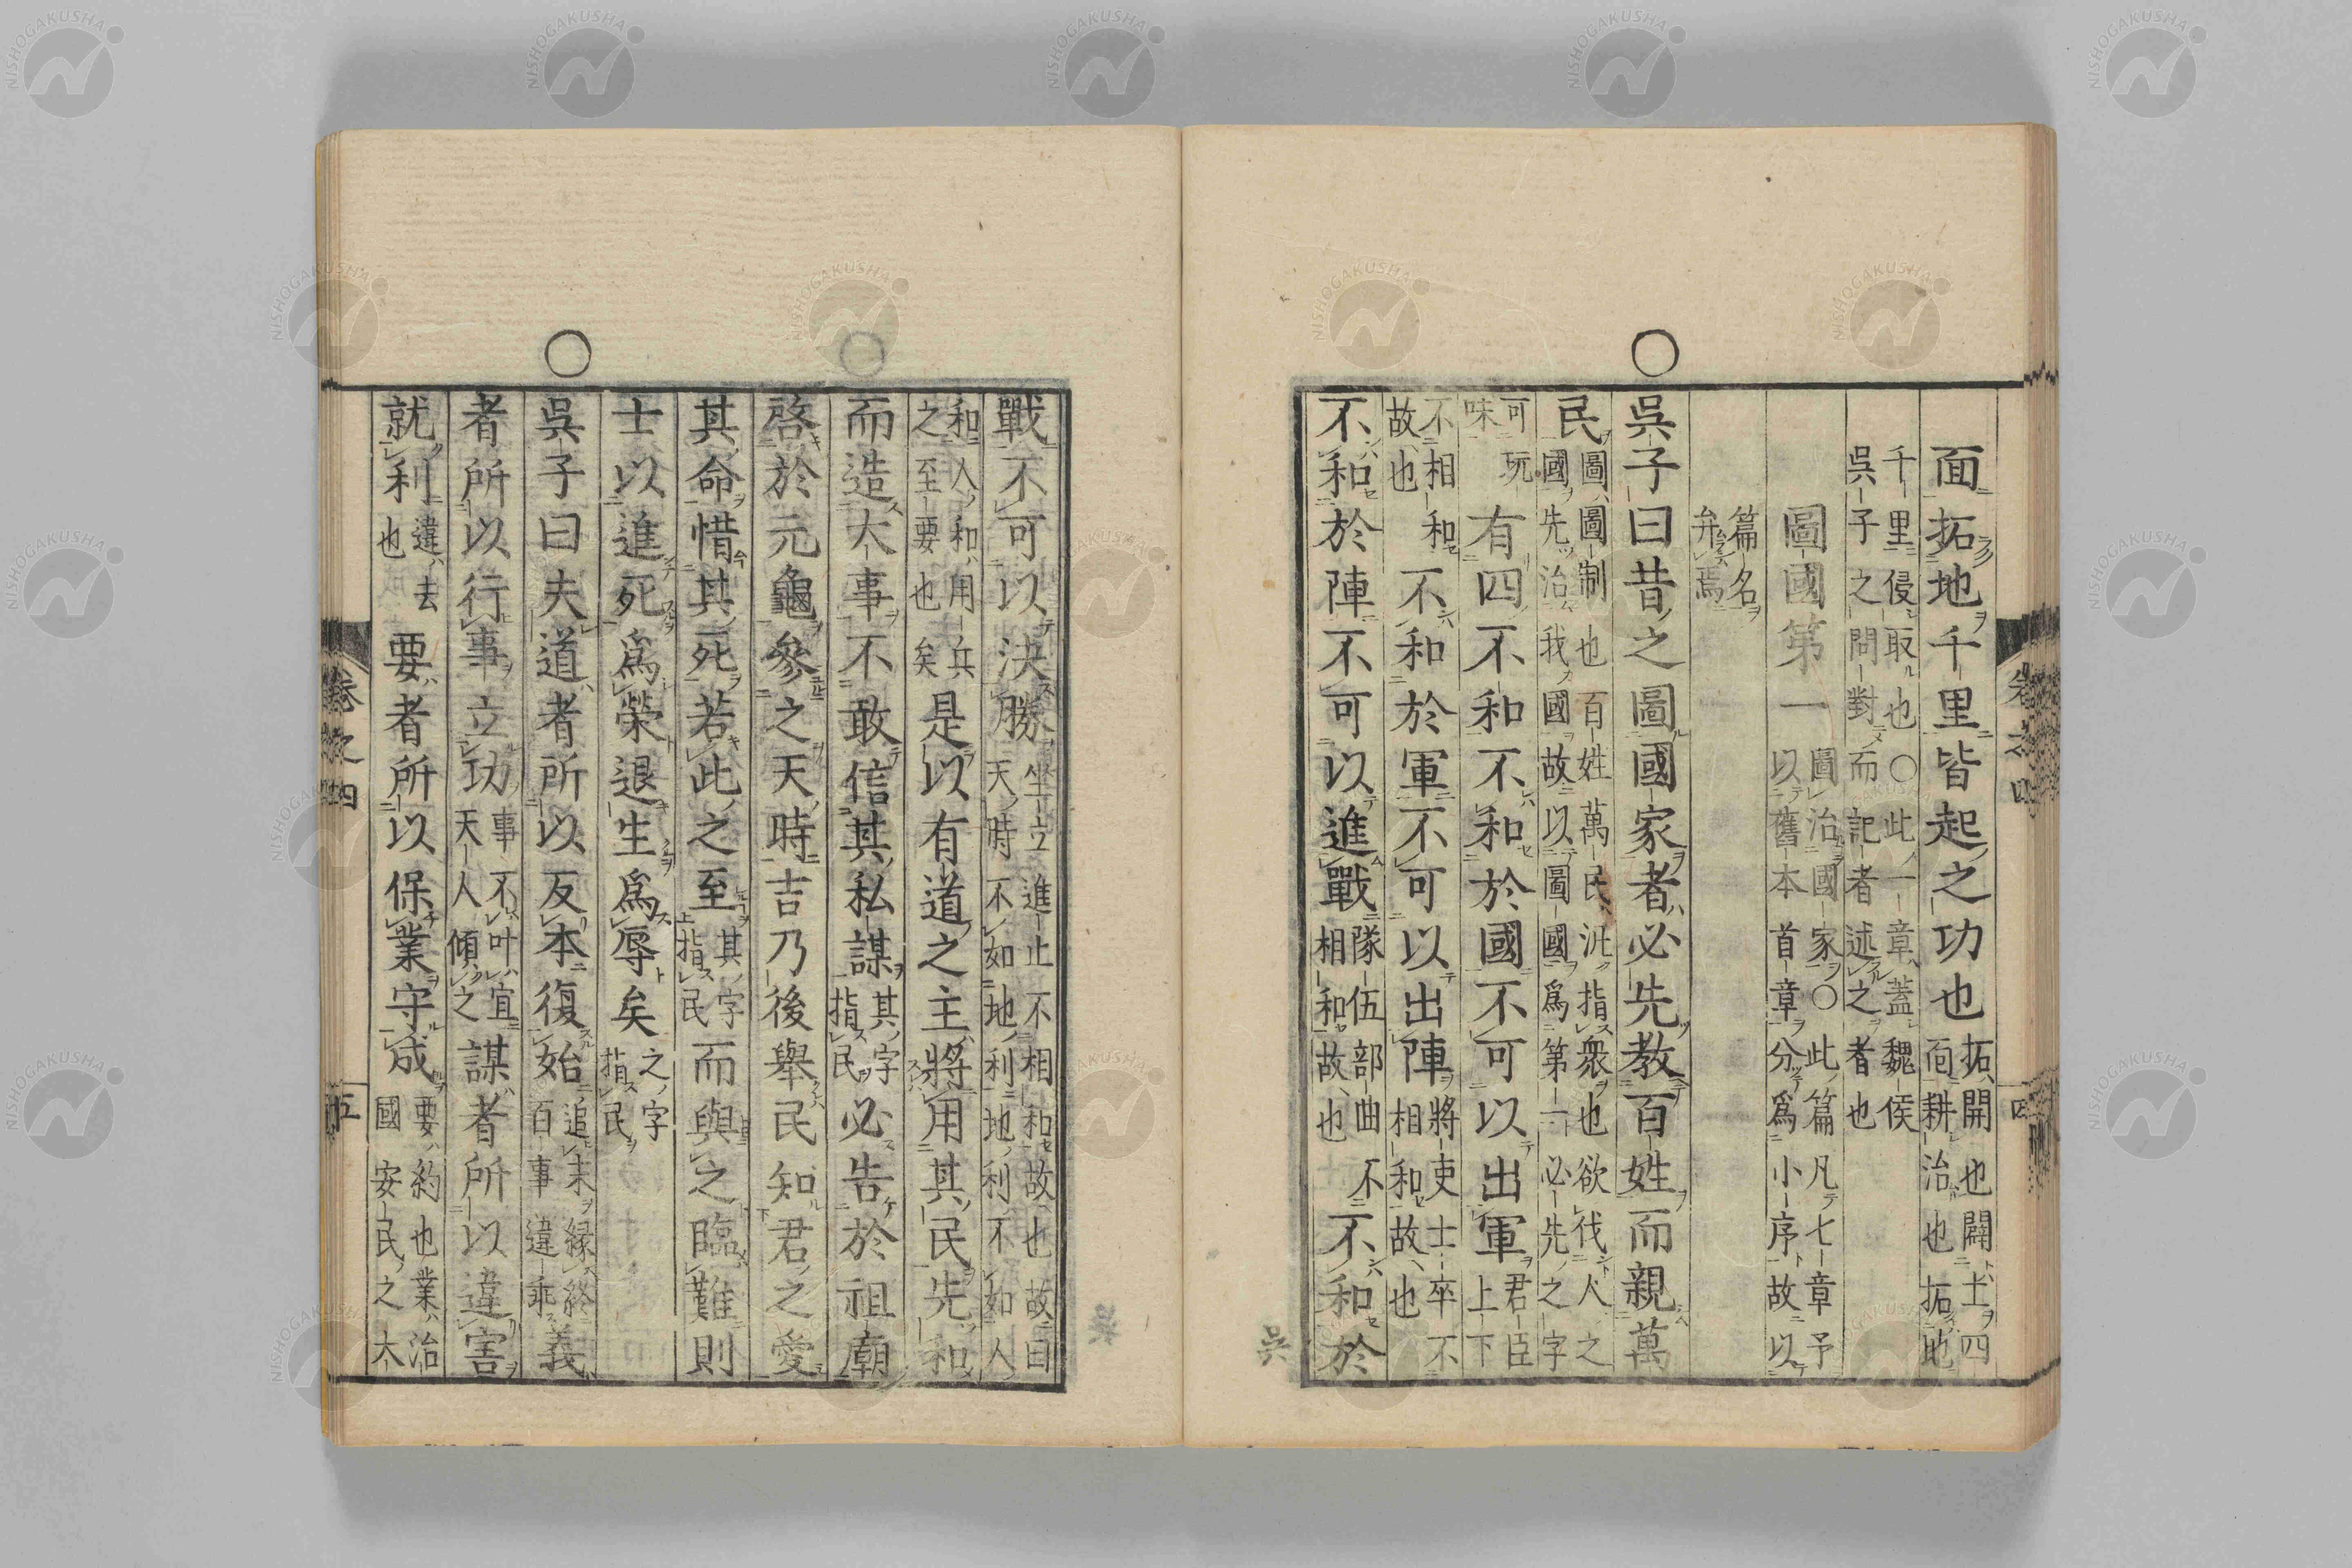 面拓地千里皆起之功也 拓開也闢土四面耕治也拓地
千里侵取也〇此一章蓋魏侯吳子之問對而記者述之者也
圖國第一 圖治國家〇此篇凡七章予以舊本首章分爲小序故以
篇名弁焉
吳子曰昔之圖國家者必先教百姓而親萬
民 圖圖制也百姓萬民汎指衆也欲伐人之國先治我國故以圖國爲第一必先之字
可玩味 有四不和不和於國不可以出軍 君臣上下
不相和故也 不和於軍不可以出陣 將吏士卒不相和故也
不和於陣不可以進戰 隊伍部曲不相和故也 不和於
戰不可以決勝 坐立進止不相和故也故曰天時不如地利地利不如人
和人和用兵之至要也矣 是以有道之主將用其民先和
而造大事不敢信其私謀 其字指民 必告於祖廟
啓於元龜參之天時吉乃後舉民知君之愛
其命惜其死若此之至 其字上指民 而與之臨難則
士以進死爲榮退生爲辱矣 之字指民
吳子曰夫道者所以反本復始 追末緣終百事違乖 義
者所以行事立功 事不叶宜天人傾之 謀者所以違害
就利 違去也 要者所以保業守成 要約也業治國安民之大
卷之四
四
卷之四
五
吳